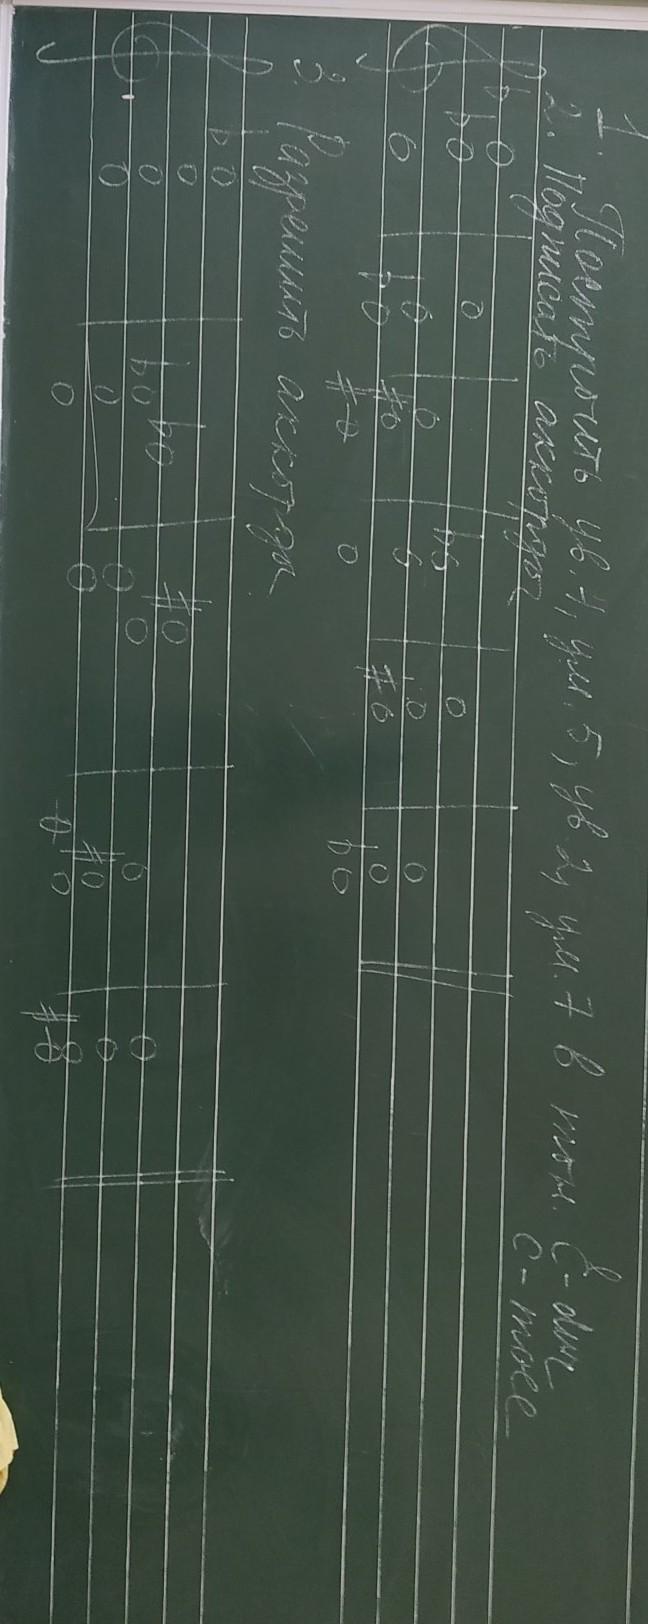 1. Построить ув. 4, ум. 5, ув. 2, ум. 7 в тон. C-dur
c-moll
2. Подписать аккорды
3. Разрешить аккорды.